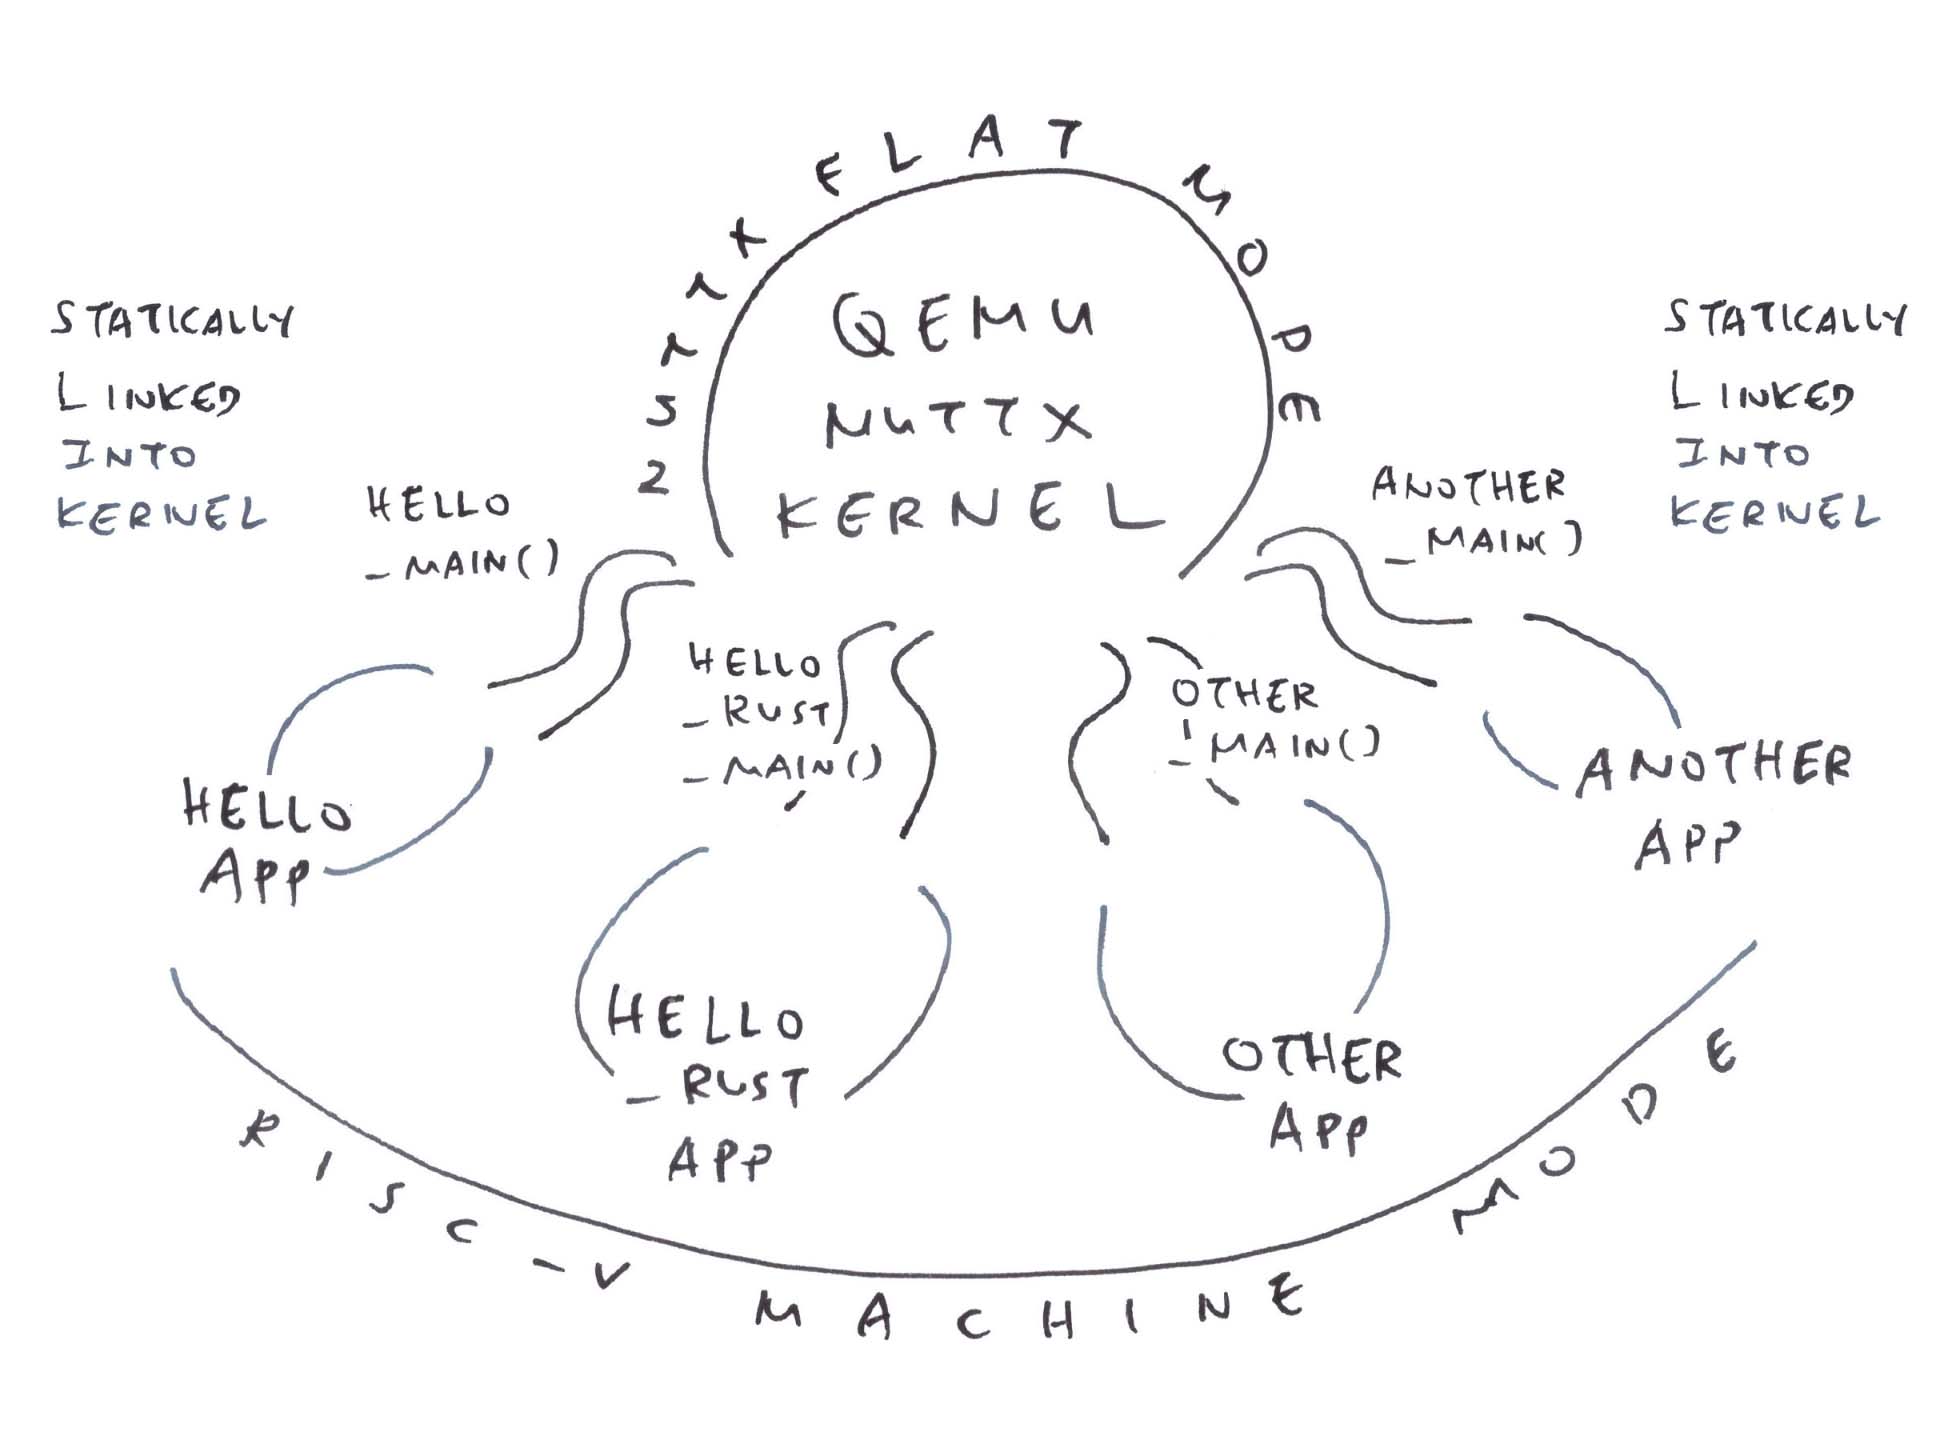 NUTTX FLAT MODE
QEMU
NUTTX
KERNEL
STATICALLY
LINKED
INTO
KERNEL
STATICALLY
LINKED
INTO
KERNEL
HELLO
_MAIN()
ANOTHER
_MAIN()
HELLO
_RUST
_MAIN()
OTHER
_MAIN()
HELLO
APP
ANOTHER
APP
HELLO
_RUST
APP
OTHER
APP
RISC-V MACHINE MODE